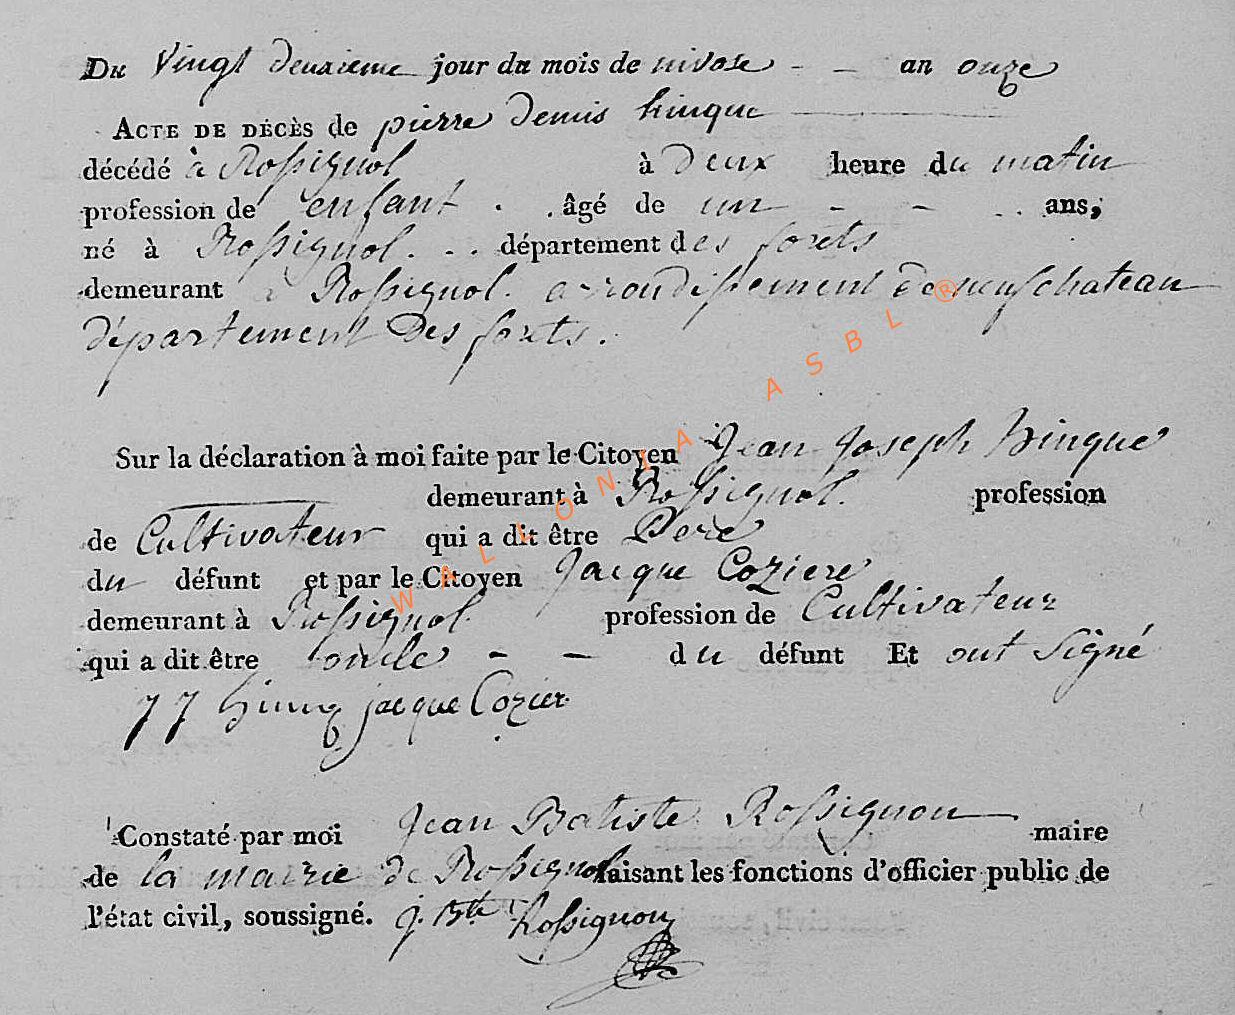 Du Vingt deuxieme jour du mois de nivose - - an onze
ACTE DE DÉCÈS de pierre Denis hinque
décédé à Rossignol à Deux heure du matin
profession de enfant . . âgé de un - - . . ans,
né à Rossignol . . . département des forets
demeurant à Rossignol. arrondissement de neufchateau
département Des forets.
Sur la déclaration à moi faite par le Citoyen Jean Joseph hinque
demeurant à Rossignol. profession
de Cultivateur qui a dit être Pere
du défunt et par le Citoyen Jacque Coziere
demeurant à Rossignol profession de Cultivateur
qui a dit être oncle - - du défunt Et ont Signé
jacque Cozier
Constaté par moi Jean Batiste Rossignon maire
de la mairie de Rossignol faisant les fonctions d'officier public de
l'état civil, soussigné. j. Bte Rossignon
WALLONIA ASBL ®